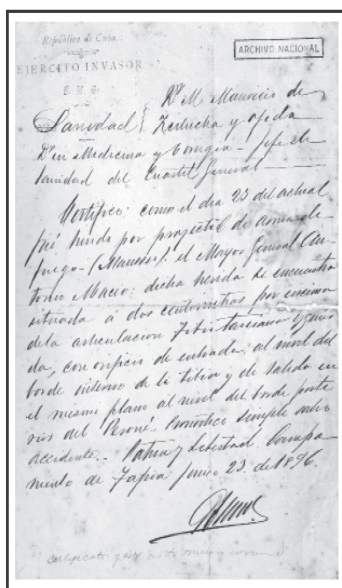 República de Cuba
ARCHIVO NACIONAL
EJERCITO INVASOR
E. M. G.
Dr. M. Mauricio de
Sanidad
y Ojeda
Dr en Medicina y Cirugia - Jefe de
Sanidad del Cuartel General
Certifico: como el dia 23 del actual
fué herido por proyectil de arma de
fuego - (Mauser) el Mayor General An-
tonio Maceo: dicha herida se encuentra
situada á dos centimetros por encima
de la articulacion Tibio tarsiana
da, con orificio de entrada al nivel del
borde interno de la tibia y de salida en
el mismo plano al nivel del borde poste
rior del Perone. Pronóstico simple salvo
accidente. - Patria y Libertad. Campa
mento de Tapia Junio 23 de 1896.